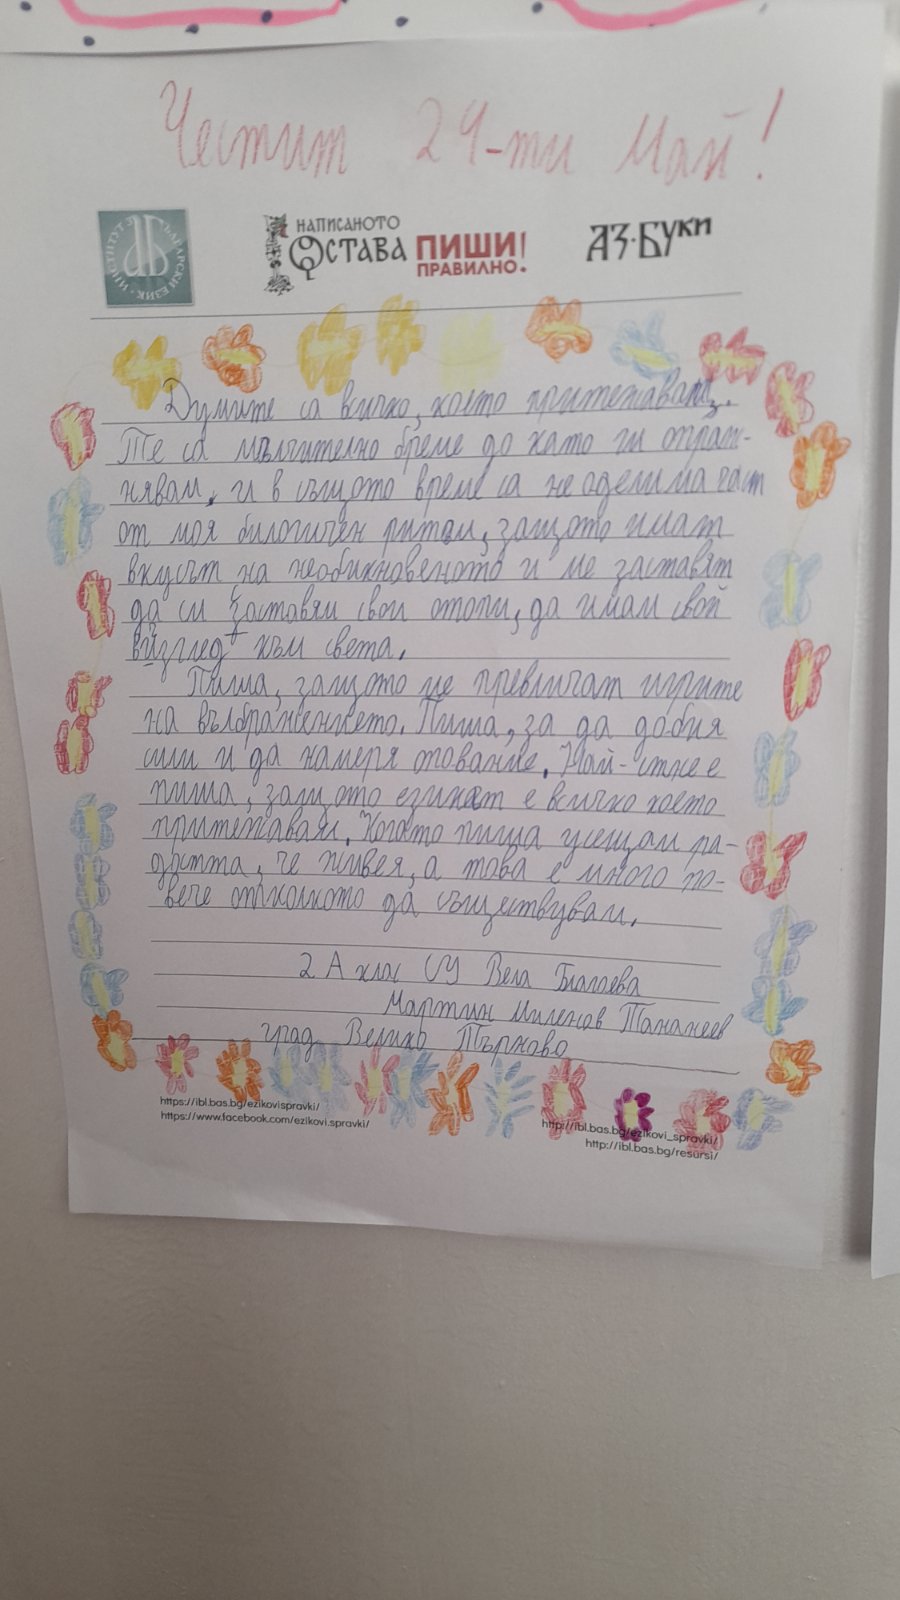 Честит 24-ти Май!
ИНСТИТУТ ЗА БЪЛГАРСКИ ЕЗИК
НАПИСАНОТО
ОСТАВА ПИШИ
ПРАВИЛНО!
АЗ·БУКИ
Думите са всичко, което притежавам.
Те са мълчително бреме до като ги опраж-
нявам, и в същото време са не одели ма част
от моя билогичен ритъм, защото имат
вкусът на необикновеното и ме заставят
да си заставям свои опори, да имам свой
взглед към света.
Пиша, защото ме превличат игрите
на вълбражението. Пиша, за да добия
сили и да намеря опование. Най-стне е
пиша, защото езикат е всичко което
притежавам. Когато пиша усещам ра-
достта, че живея, а това е много по-
вече отколкото да съществувам.
2 А клас СУ Вела Благоева
Мартин Миленов Тананеев
град Велико Търново
https://ibl.bas.bg/ezikovispravki/
https://www.facebook.com/ezikovi.spravki/
http://ibl.bas.bg/ezikovi_spravki/
http://ibl.bas.bg/resursi/